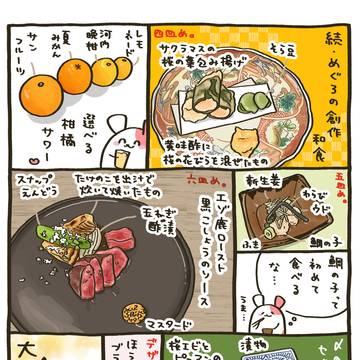 続・めぐろの創作
和食
四皿め。
サクラマスの
桜の葉包み揚げ
そら豆
黄味酢に
桜の花びらを混ぜたもの
レモネード
河内晩柑
夏みかん
サンフルーツ
選べる
柑橘
サワー
五皿め。
新生姜
わらび
ウド
ふき
鯛の子
鯛の子って
初めて
食べる
な…
うま…
六皿め。
エゾ鹿ロースト
黒こしょうのソース
たけのこを出汁で
炊いて焼いたもの
スナップ
えんどう
玉ねぎ
酢漬
マスタード
漬物
桜エビと